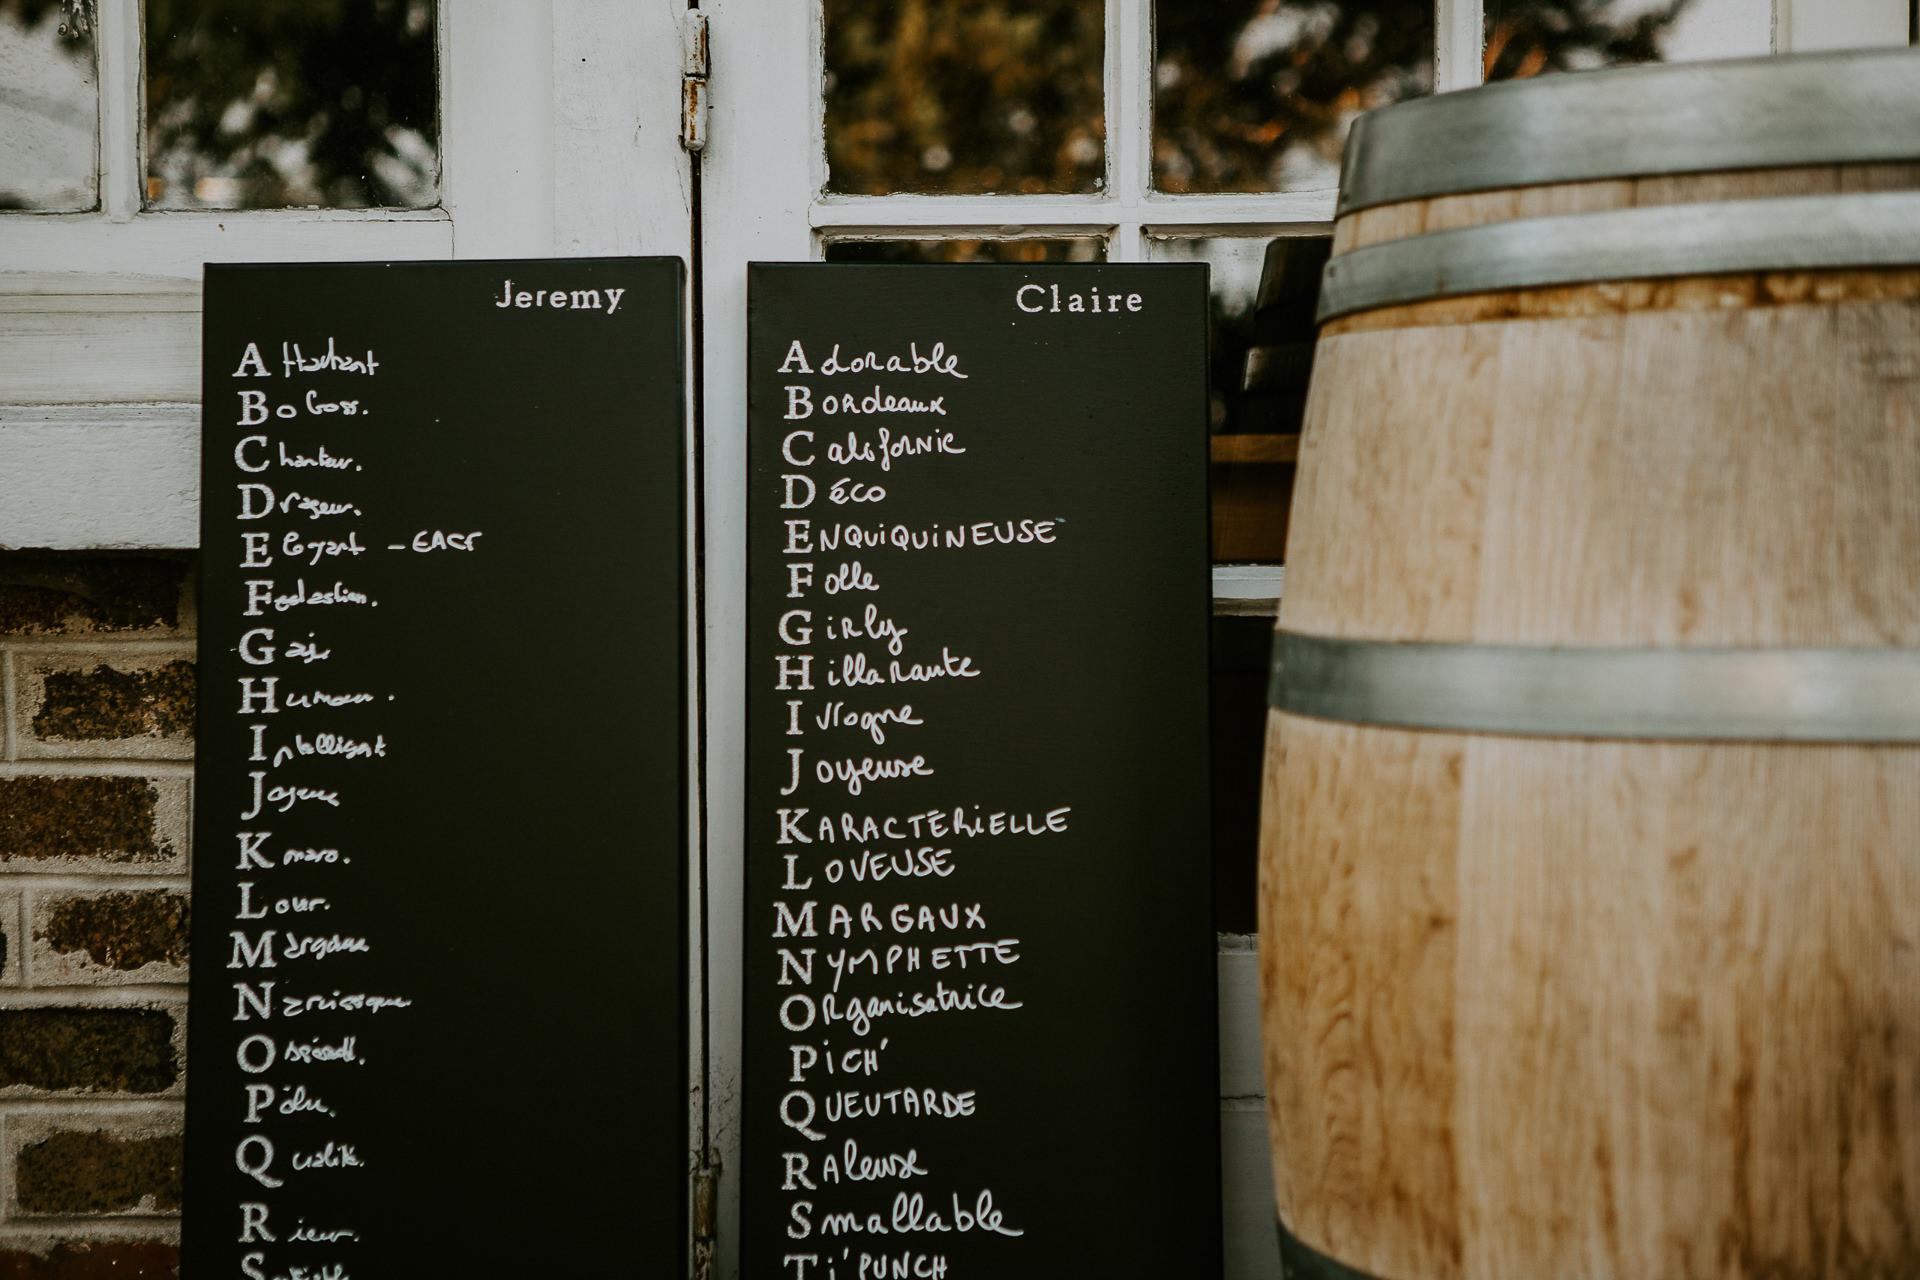 Jeremy
Attachant
Boloss.
Chanteur.
Drageur.
Elegant - EACF
F
Gai
Humour.
Intelligent
Joyeux
K
Lour.
Margaux
Narcissique
O
P
Qualité.
Rieur.
S
Claire
Adorable
Bordeaux
Californie
Déco
ENQUiQUiNEUSE
Folle
Girly
Hillarante
Ivrogne
Joyeuse
KARACTÉRiELLE
LOVEUSE
MARGAUX
NYMPHETTE
Organisatrice
PiCH'
QUEUTARDE
RAleuse
Smallable
Ti'PUNCH